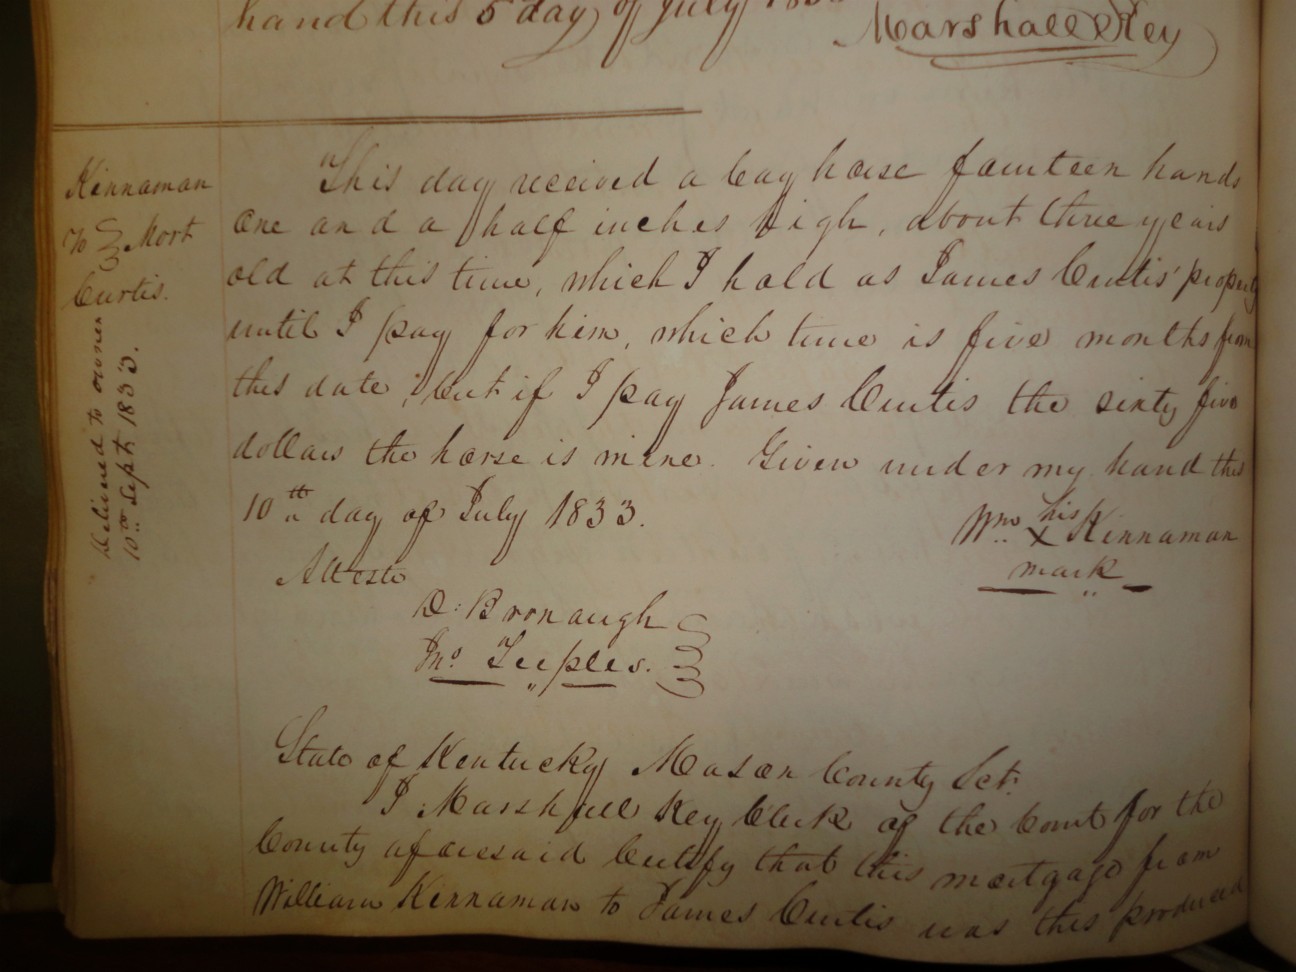 hand this 5 day of July
Marshall Key
Kinnaman
To } Mort
Curtis.
Delivered to owner
10th Sept. 1833.
This day received a bay horse fourteen hands
one and a half inches high, about three years
old at this time, which I hold as James Curtis' property
until I pay for him, which time is five months from
this date; but if I pay James Curtis the sixty five
dollars the horse is mine. Given under my hand this
10th day of July 1833.
Wm. his X Kinnaman
mark
Atteste
D. Bronaugh
Jno. Teeples.
State of Kentucky Mason County Sct.
I Marshall Key Clerk of the Court for the
County aforesaid Certify that this mortgage from
William Kinnaman to James Curtis was this produced